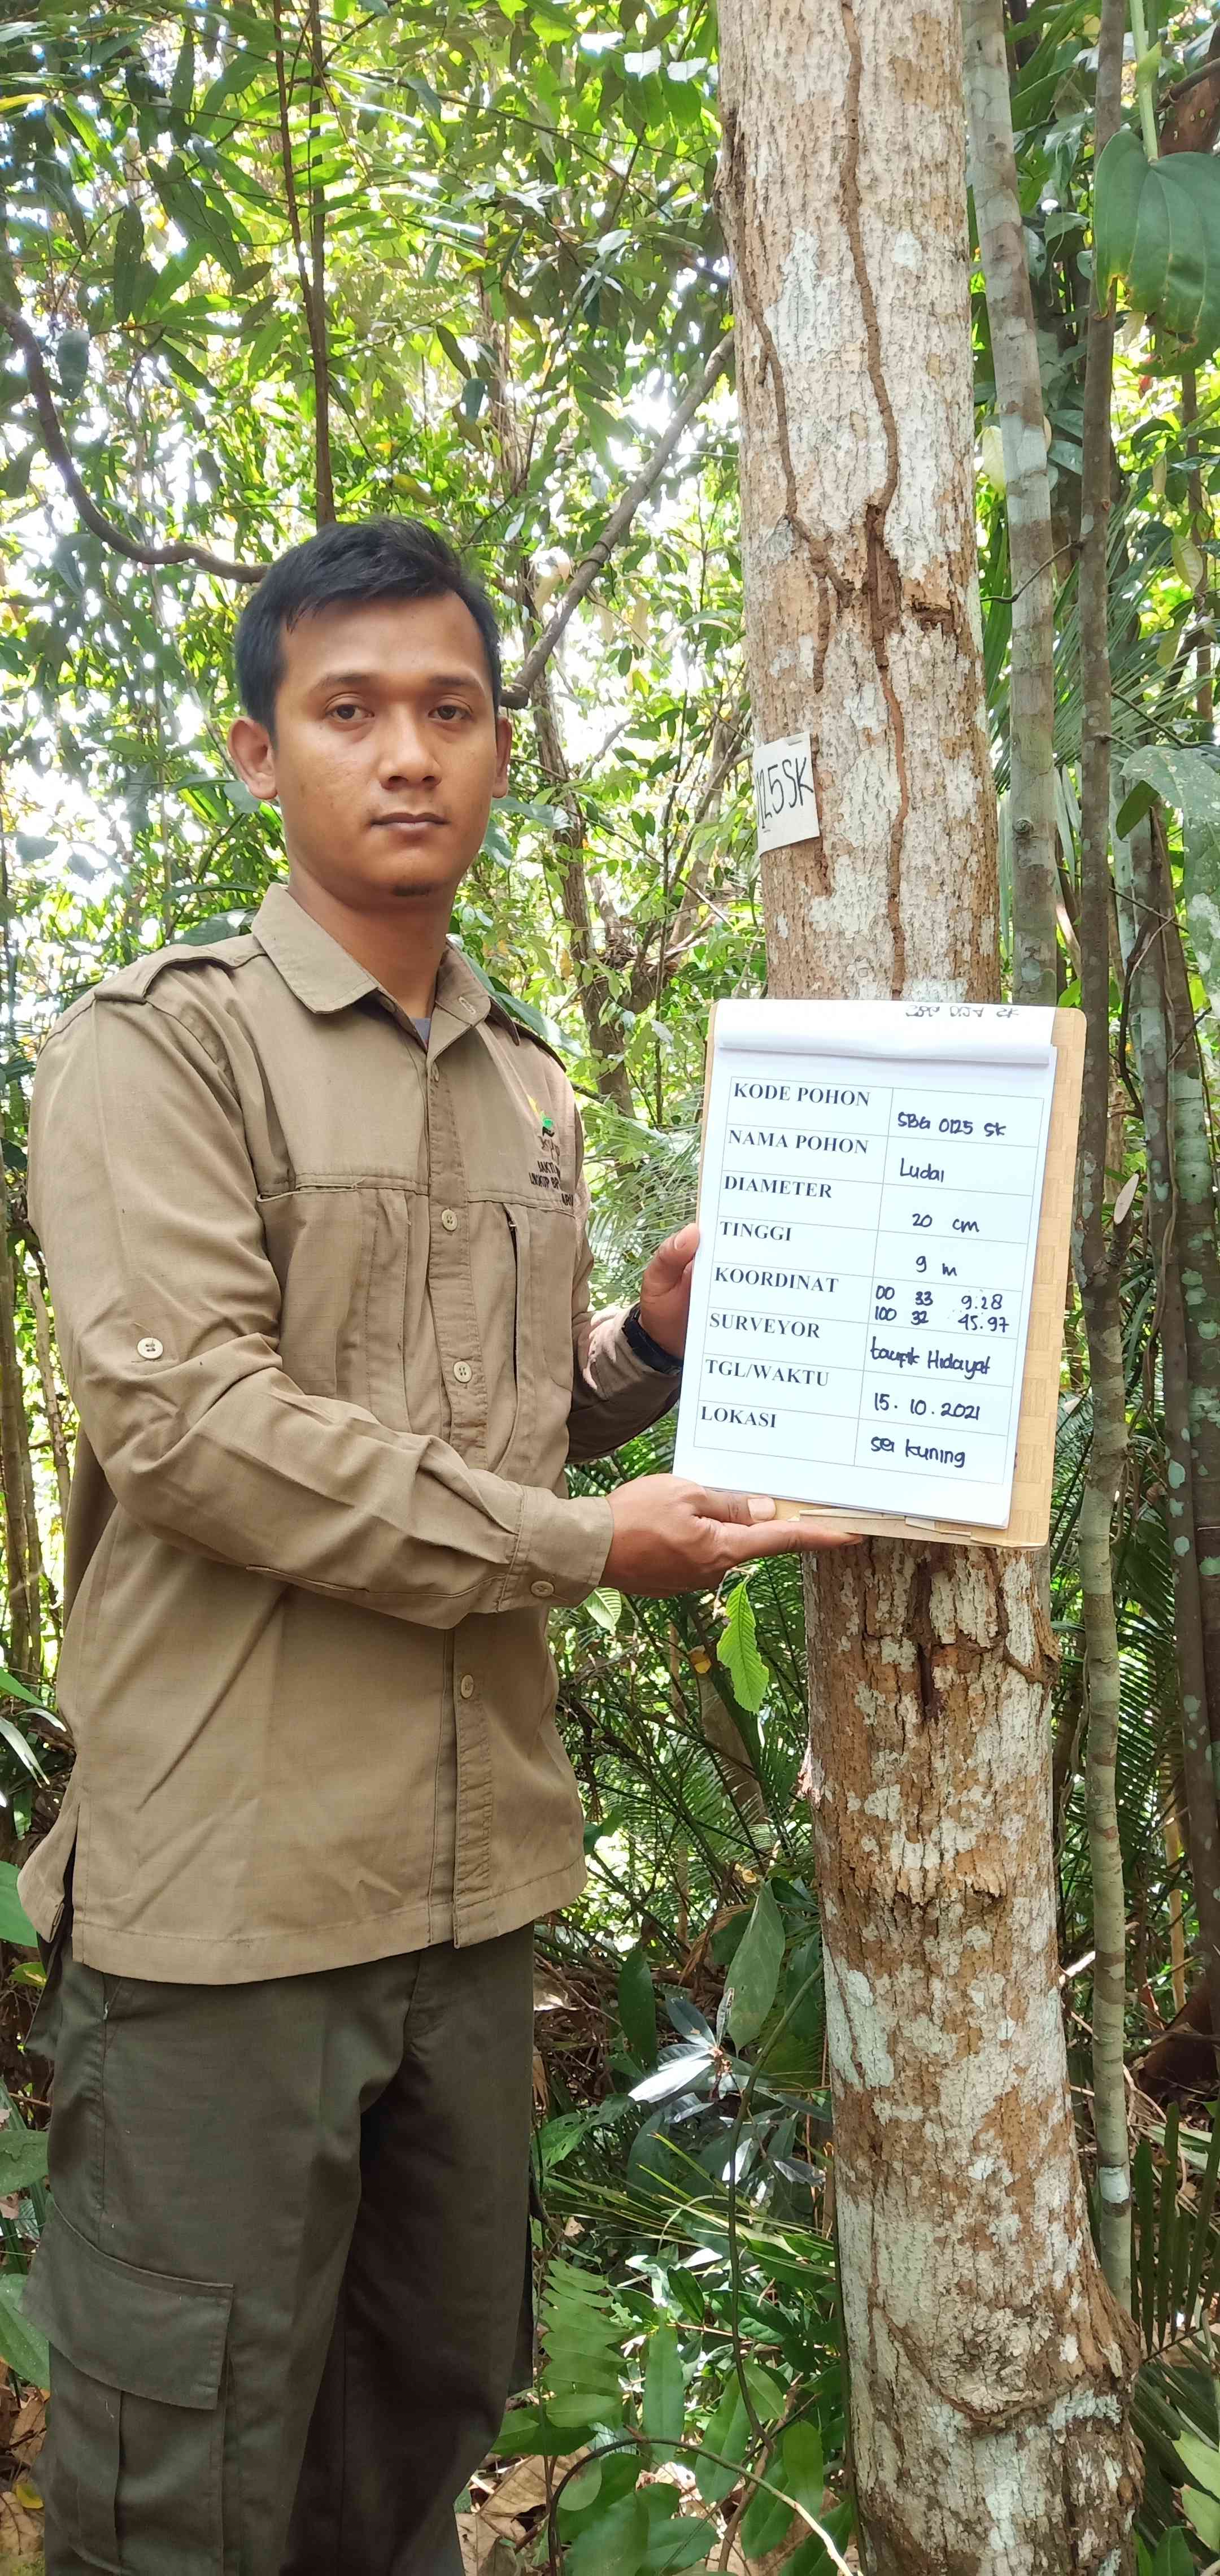 125SK
KODE POHON SBG 0125 SK
NAMA POHON Ludai
DIAMETER 20 cm
TINGGI 9 m
KOORDINAT 00 33 9.28
100 32 45.97
SURVEYOR taupik Hidayat
TGL/WAKTU 15.10.2021
LOKASI sei kuning